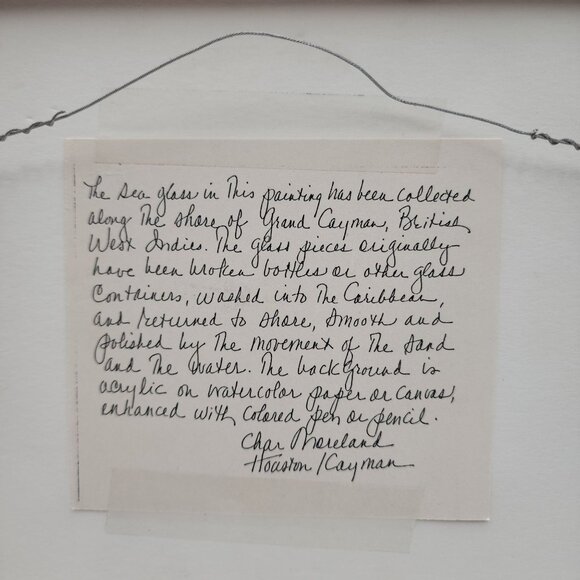 The sea glass in This painting has been collected
along The shore of Grand Cayman, British
West Indies. The glass pieces originally
have been broken bottles or other glass
containers, washed into The Caribbean,
and returned to shore, smooth and
polished by The movement of The sand
and The water. The background is
acrylic on watercolor paper or canvas,
enhanced with colored pen or pencil.
Char Moreland
Houston/Cayman